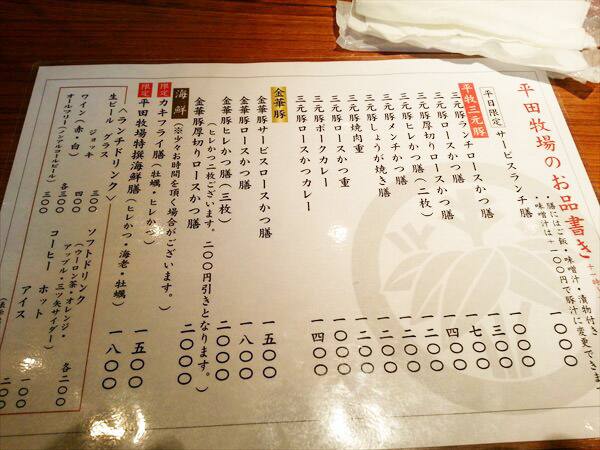 平田牧場のお品書き
・膳にはご飯・味噌汁・漬物付き
・味噌汁は+一〇〇円で豚汁に変更できま
平日限定 サービスランチ膳 一〇〇〇
平牧三元豚
三元豚ランチロースかつ膳 一三〇〇
三元豚ロースかつ膳 一四〇〇
三元豚厚切りロースかつ膳 一七〇〇
三元豚ヒレかつ膳(二枚)
三元豚メンチかつ膳
三元豚しょうが焼き膳
三元豚焼肉重
三元豚ロースかつ重
三元豚ポークカレー
三元豚ロースかつカレー 一四〇〇
金華豚
金華豚サービスロースかつ膳 一五〇〇
金華豚ロースかつ膳 一八〇〇
金華豚ヒレかつ膳(三枚) 二〇〇〇
(ヒレかつ二枚ございます。二〇〇円引きとなります。)
金華豚厚切りロースかつ膳 二〇〇〇
海鮮
(※少々お時間を頂く場合がございます。)
限定 カキフライ膳(牡蠣・ヒレかつ) 一五〇〇
限定 平田牧場特撰海鮮膳(ヒレかつ・海老・牡蠣) 一八〇〇
〈ランチドリンク〉
生ビール グラス 三〇〇
ジョッキ 四〇〇
ワイン(赤・白) 各三〇〇
オールフリー(ノンアルコールビール) 三〇〇
ソフトドリンク
(ウーロン茶・オレンジ・
アップル・三ツ矢サイダー) 各二〇〇
コーヒー ホット 一〇〇
アイス 二〇〇